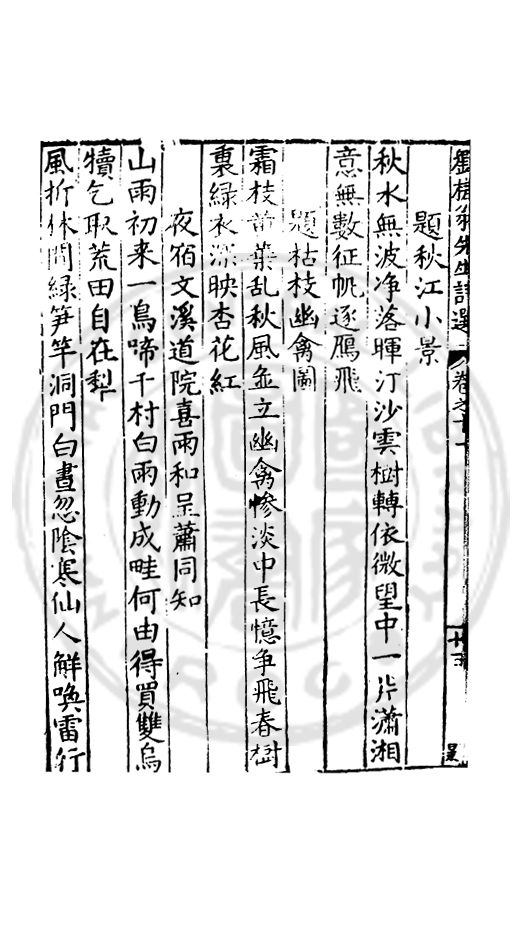 劉槎翁先生詩選 卷之十一
題秋江小景
秋水無波净落暉汀沙雲樹轉依微望中一片瀟湘
意無數征帆逐鴈飛
題枯枝幽禽圖
霜枝黄葉乱秋風並立幽禽慘淡中長憶争飛春樹
裏綠衣深映杏花紅
夜宿文溪道院喜雨和呈蕭同知
山雨初来一鳥啼千村白雨動成畦何由得買雙烏
犢乞取荒田自在犁
風折林間綠笋竿洞門白晝忽陰寒仙人鮮喚雷行